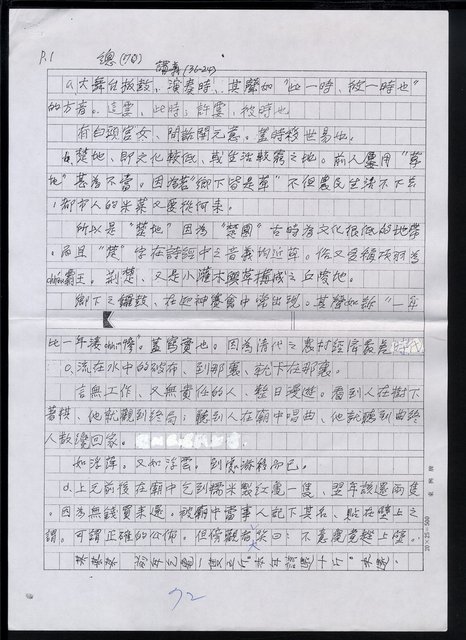 P.1 總(70)
譜義(36-24)
a. 大舞台扳鼓、演奏時、其聲如“此一時、彼一時也”
的方音。這雲、此時；許雲、彼時也
有白頭宮女、閒話開元意。蓋時移世易也。
b. 楚地、即文化較低、或生活較窮之地。前人屢用“草
地”甚為不當。因為若“鄉下皆是草”不但農民生活不下去
，都市人的米菜又要從何來。
所以是“楚地”因為“楚國”古時為文化很低的地帶
。而且“楚”字在詩經中之音義均近草。俗又受稱項羽為
霸王。荆楚、又是小灌木與草構成之丘陵地。
鄉下之鑼鼓、在迎神賽會中常出現。其聲如訴“一年
比一年淒慘。蓋寫實也。因為清代之農村經濟最差時代
c. 流在水中的破布、到那裏、就卡在那裏。
言無工作、又無責任的人、整日漫遊。看到人在樹下
著棋、他就觀到終局；聽到人在廟中唱曲、他就聽到曲終
人散纔回家。
如浮萍。又如浮雲。到處漂移而已。
d. 上元前後在廟中乞到糯米製紅龜一隻、翌年該還兩隻
。因為無錢買來還。被廟中當事人記下其名、貼在壁上之
謂。可謂正確的公佈。但傍觀者笑曰：不意龜竟趖上壁。
20×25=500
72